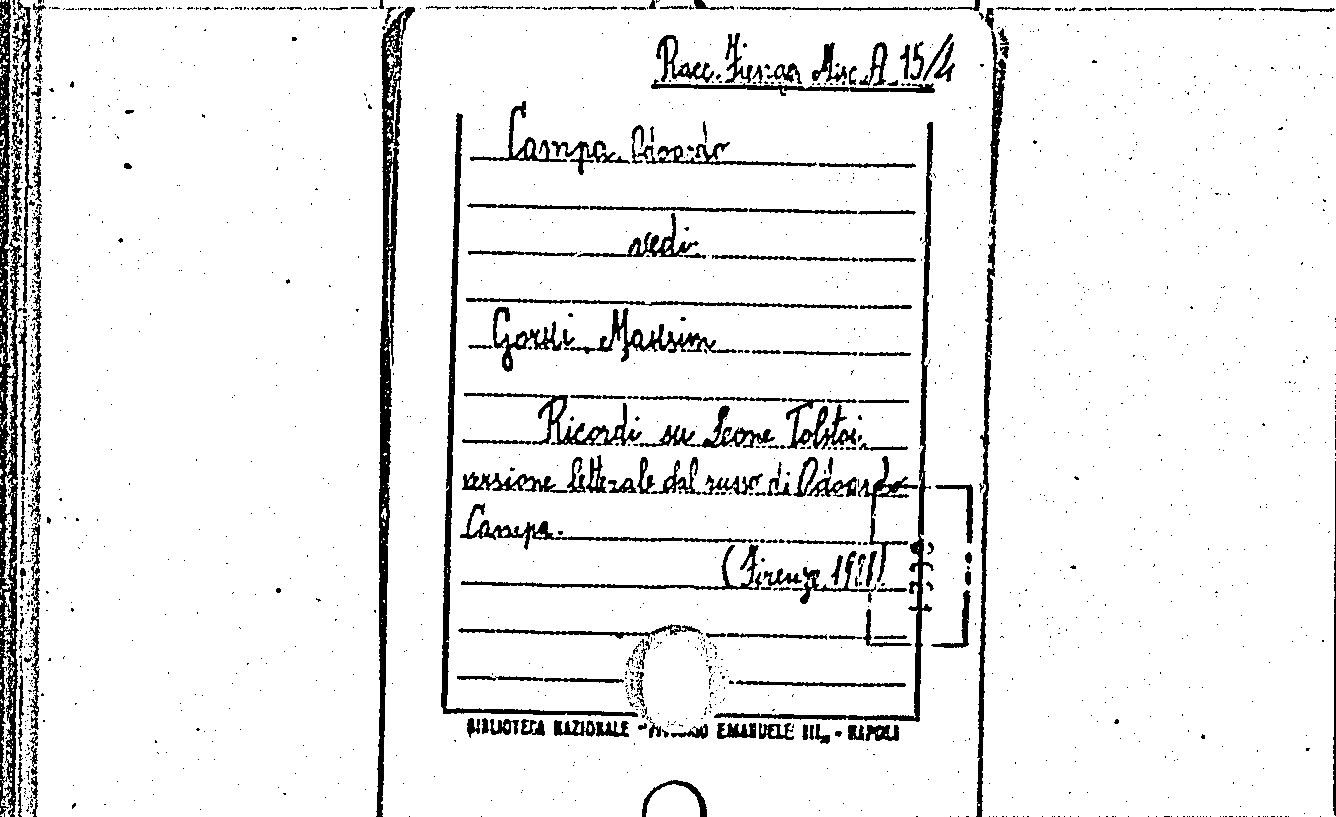 Racc. Fienga Misc. A 15/4
Campa Odoardo
vedi
Gorkii Maksim
Ricordi su Leone Tolstoi.
versione letterale dal russo di Odoardo
Campa.
(Firenze,
BIBLIOTECA NAZIONALE - VITTORIO EMANUELE III„ - NAPOLI